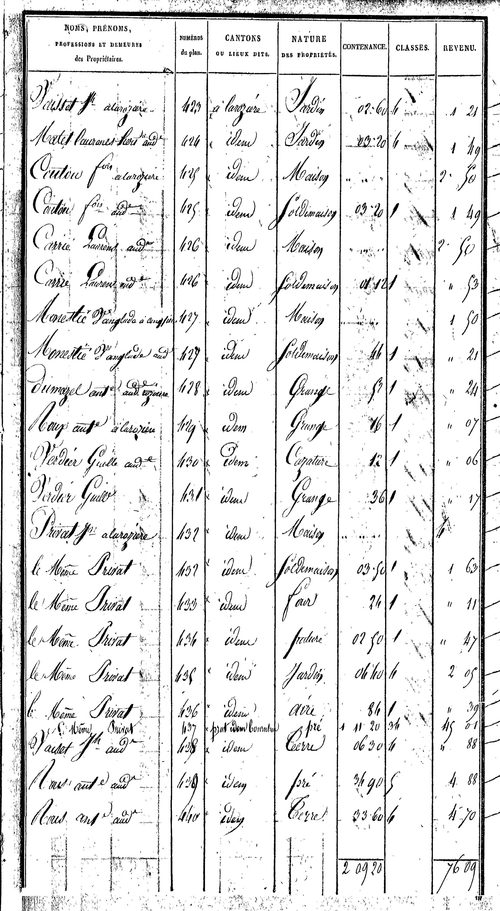 NOMS, PRÉNOMS, PROFESSIONS ET DEMEURE des Propriétaires. NUMÉROS du plan. CANTONS OU LIEUX DITS. NATURE DES PROPRIÉTÉS. CONTENANCE. CLASSES. REVENU.
a larozière 423 a larozière Jardin 02 60 4 1 21
424 idem Jardin 03 20 4 1 49
Couton fois a larozière 425 idem Maison 2 50
Couton fois aude 425 idem Soldemaison 03 20 1 1 49
Carrie Laurens aude 426 idem Maison 2 50
Carrie Laurens aude 426 idem Soldemaison 01 12 1 " 53
Monestié 427 idem Maison 1 50
Monestié 427 idem Soldemaison 44 1 " 21
Dumazel ante 428 idem Grange 51 1 " 24
Roux ante a larozière 429 idem Grange 16 1 " 07
Verdier Guille aude 430 idem 12 1 " 06
Verdier Guille 431 idem Grange 36 1 " 17
Privat a larozière 432 idem Maison
le Même Privat 432 idem Soldemaison 03 50 1 1 63
le Même Privat 433 idem four 24 1 " 11
le Même Privat 434 idem 02 50 1 " 47
le Même Privat 435 idem Jardin 04 40 4 2 05
le Même Privat 436 idem aire 84 1 " 39
le Même Privat 437 pré 1 11 20 34 45 01
aude 438 idem Terre 06 30 4 " 88
ante aude 439 idem pré 34 90 5 4 88
ante aude 440 idem Terre 33 60 4 4 70
2 09 20 76 09